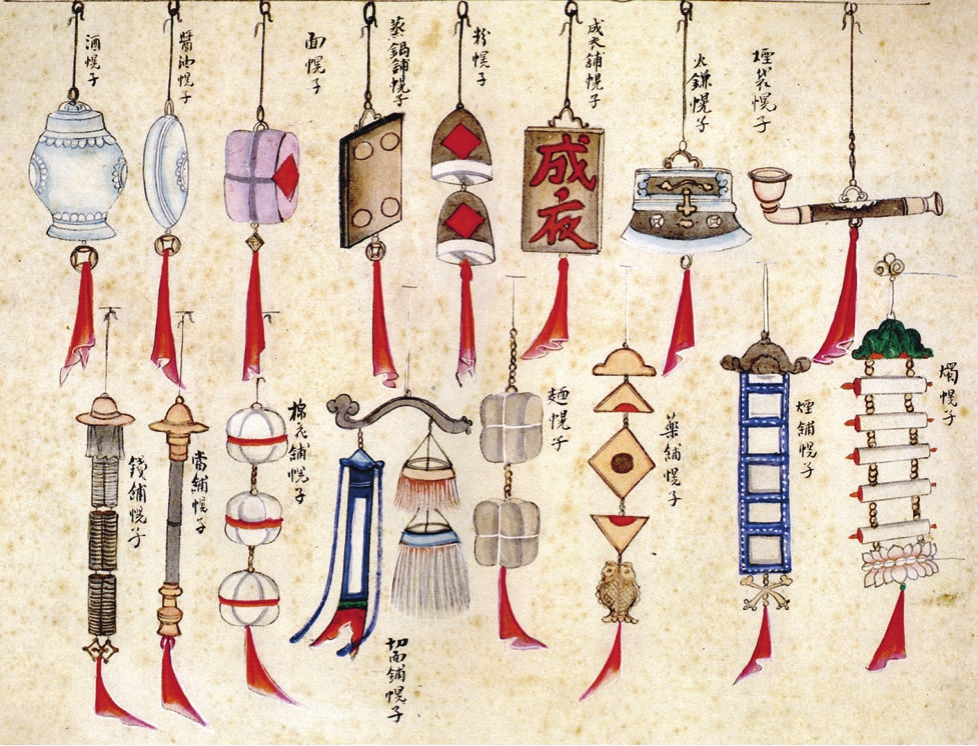 酒幌子
醬油幌子
面幌子
蒸鍋舖幌子
粉幌子
成衣舖幌子
成夜
火鐮幌子
煙袋幌子
錢舖幌子
當舖幌子
棉花舖幌子
切面舖幌子
麵幌子
藥舖幌子
煙舖幌子
燭幌子